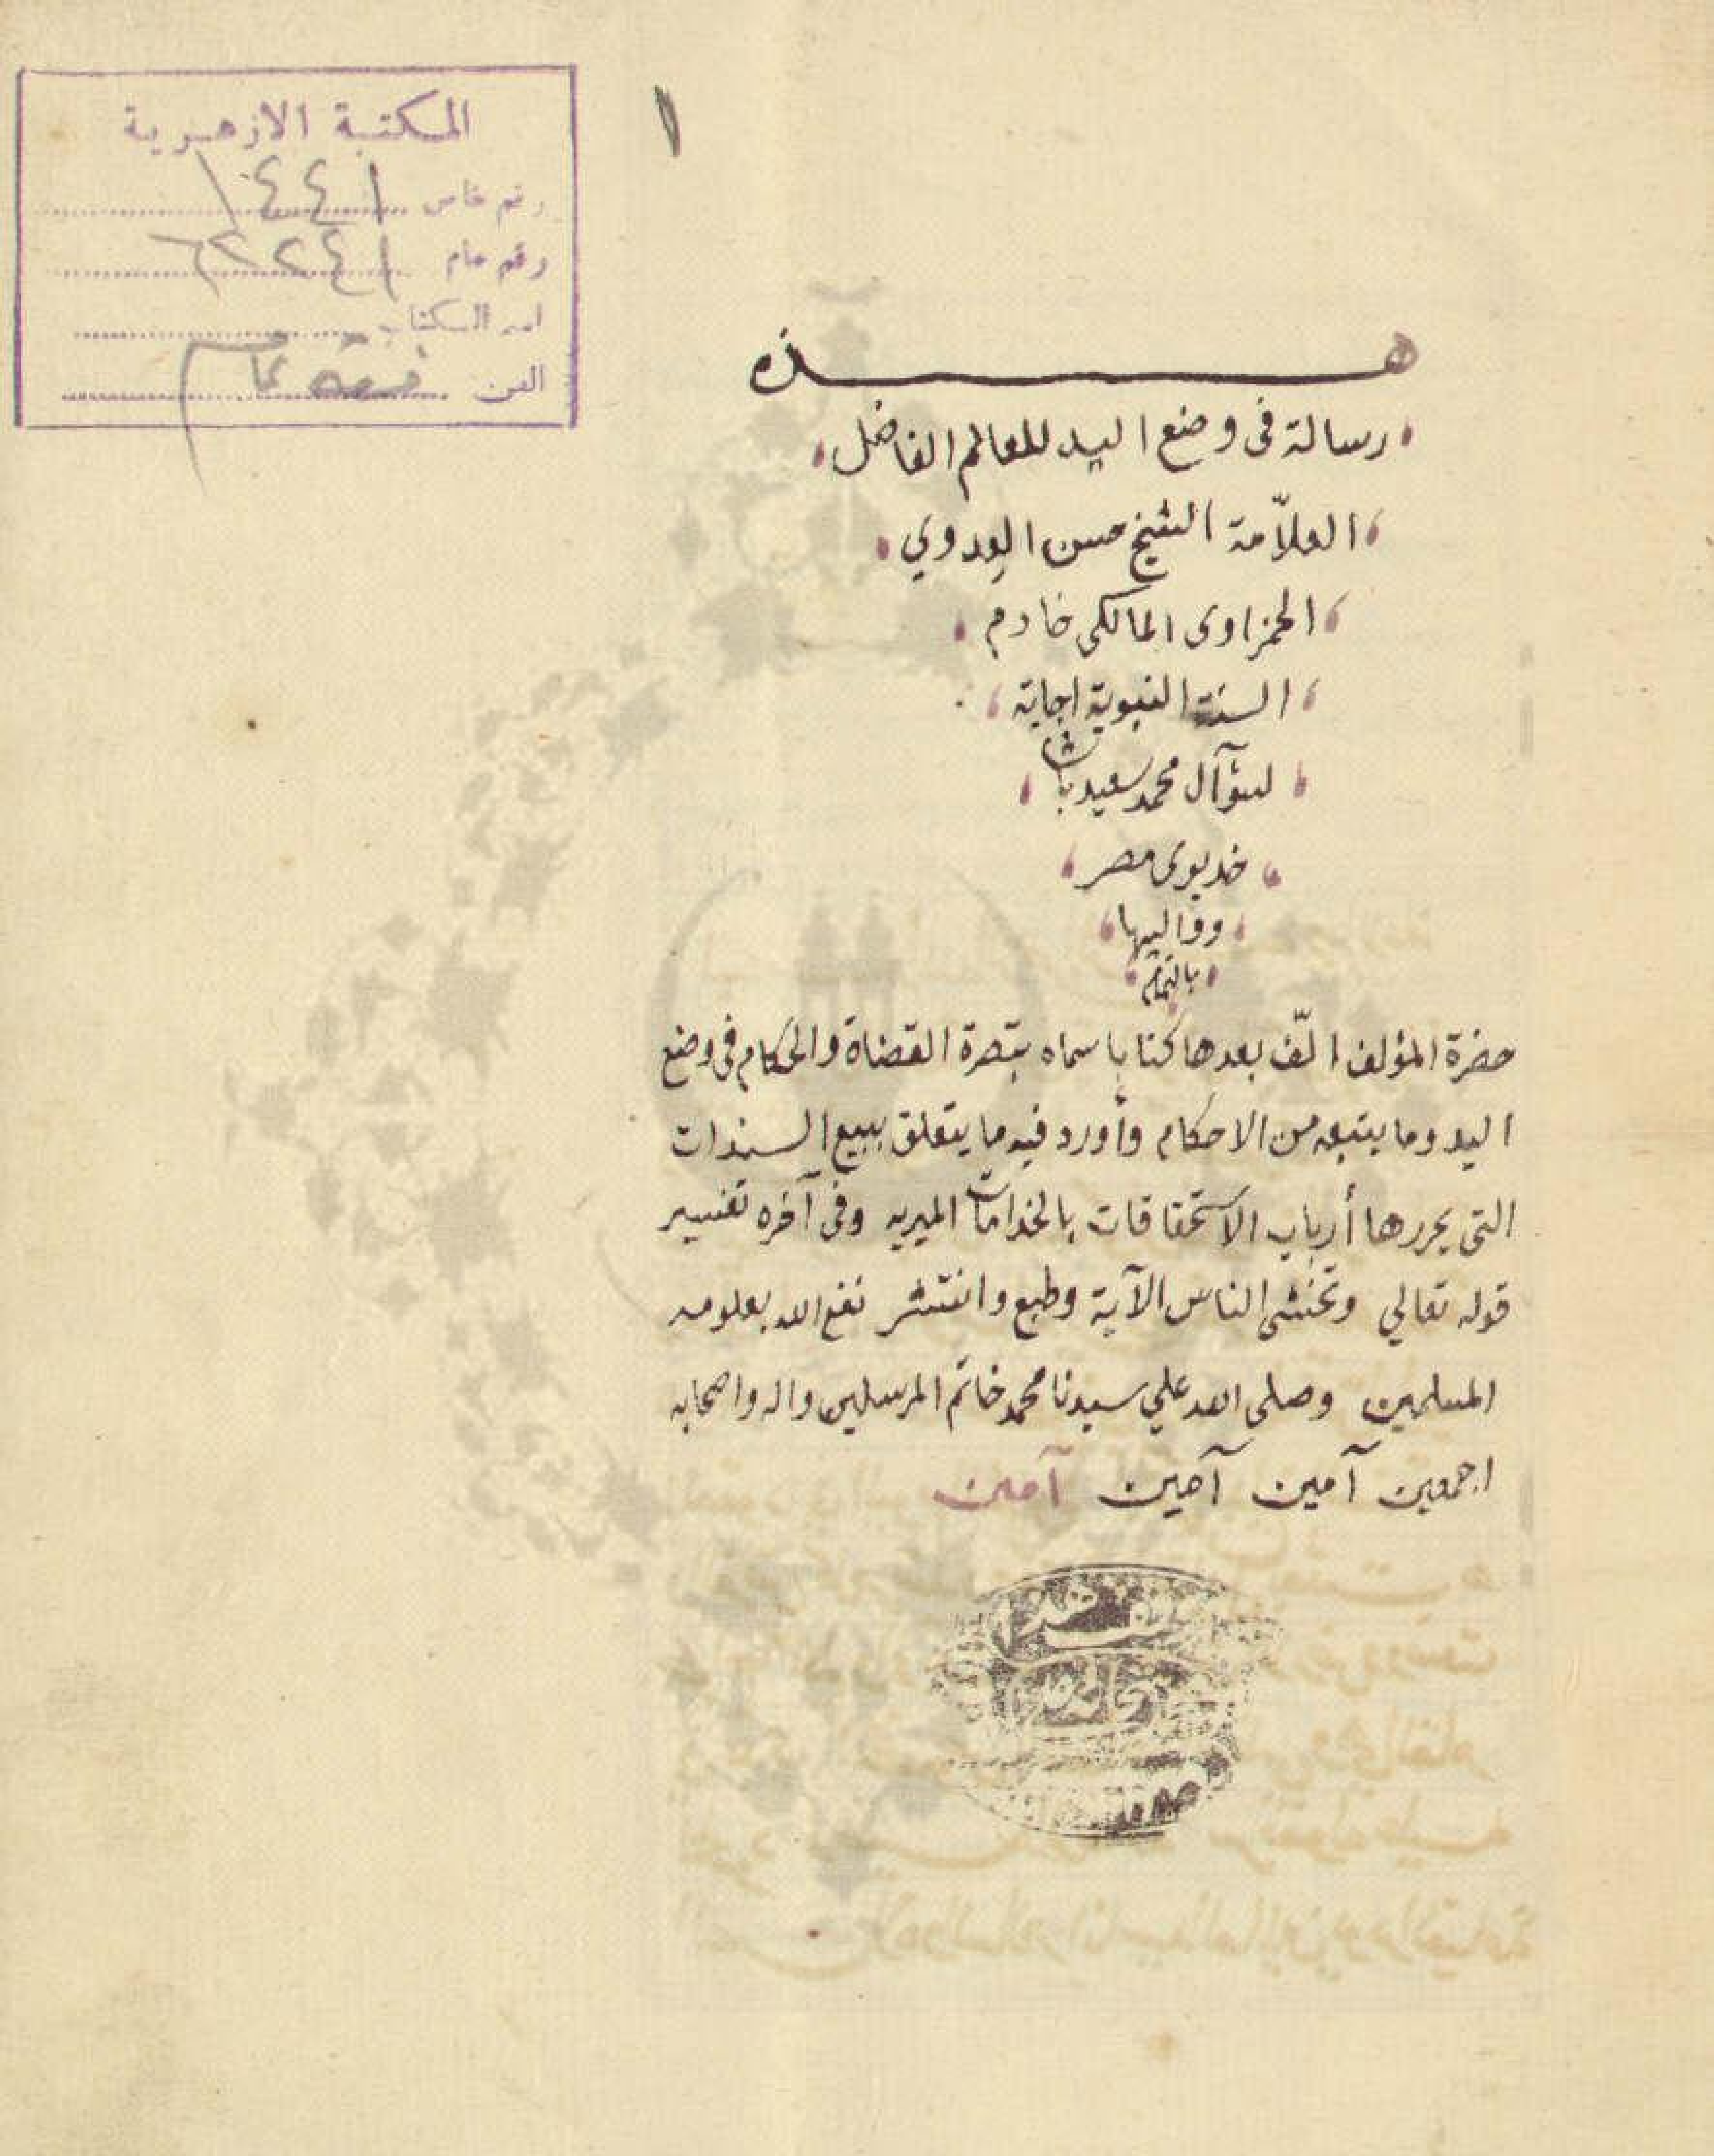 المكتبة الازهرية
رقم خاص ١٤٤١
رقم عام
اسم الكتاب
الفن فقه عام
١
هذه
رسالة فى وضع اليد للعالم الفاضل
العلّامة الشيخ حسن العدوي
الحمزاوى المالكى خادم
السنة النبوية اجابة
لسؤآل محمد سعيد باشا
خديوى مصر
وواليها
بالتمام
حضرة المؤلف الّف بعدها كتابا سماه بتبصرة القضاة والحكام فى وضع
اليد وما يتبعه من الاحكام وأورد فيه ما يتعلق ببيع السندات
التى يحررها أرباب الاستحقاقات بالخدامات الميريه وفى آخره تفسير
قوله تعالي وتخشى الناس الآية وطبع وانتشر نفع الله بعلومه
المسلمين وصلى الله علي سيدنا محمد خاتم المرسلين واله واصحابه
اجمعين آمين آمين آمين